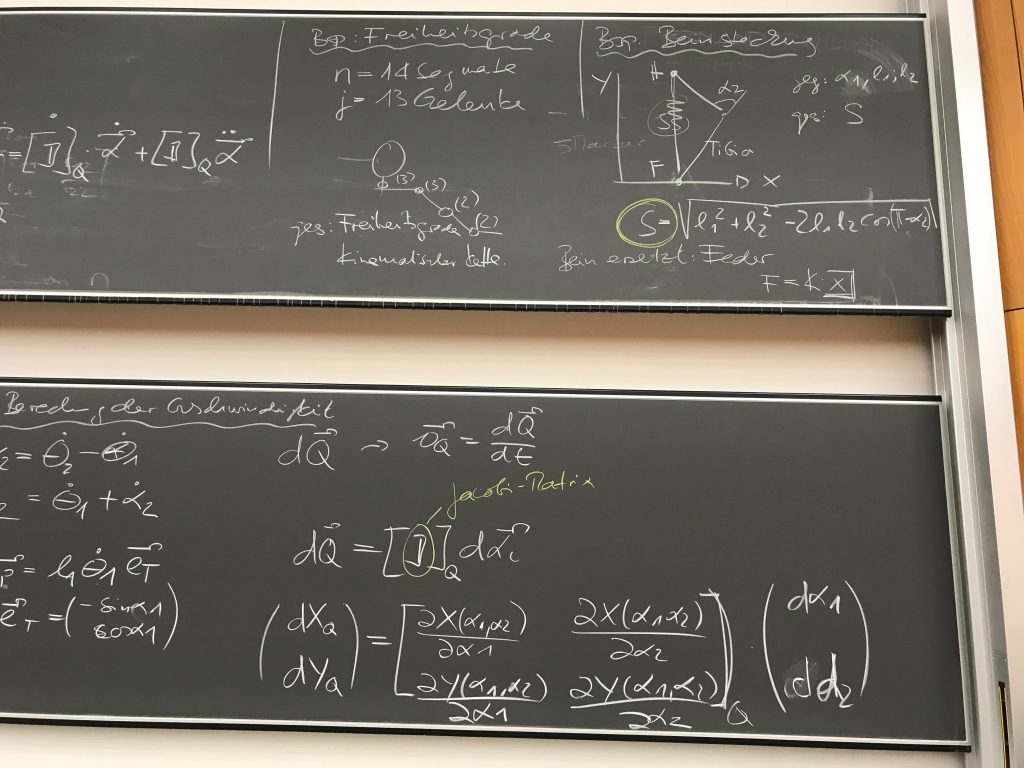 = [J]_Q · α⃗ + [J]_Q α⃗̈
Bsp.: Freiheitsgrade
n = 14 Segmente
j = 13 Gelenke
(3)
(3)
(2)
(2)
ges: Freiheitsgrade
Kinematischer Kette.
Bsp. Beinsteifung
Y
H
α2
S
Tibia
F
D X
geg: α1, l1, l2
ges: S
S = √(l1² + l2² - 2l1l2 cos(π-α2))
Bein ersetzt: Feder
F = k · x
Berechnung der Geschwindigkeit
2 = θ̇2 - θ̇1
2 = θ̇1 + α̇2
= l1 θ̇1 e⃗T
e⃗T = (-sinα1
cosα1)
dQ⃗ → v⃗Q = dQ⃗/dt
Jacobi-Matrix
dQ⃗ = [J]_Q dα⃗i
(dXQ
dYQ) = [∂X(α1,α2)/∂α1 ∂X(α1,α2)/∂α2
∂Y(α1,α2)/∂α1 ∂Y(α1,α2)/∂α2]_Q · (dα1
dα2)